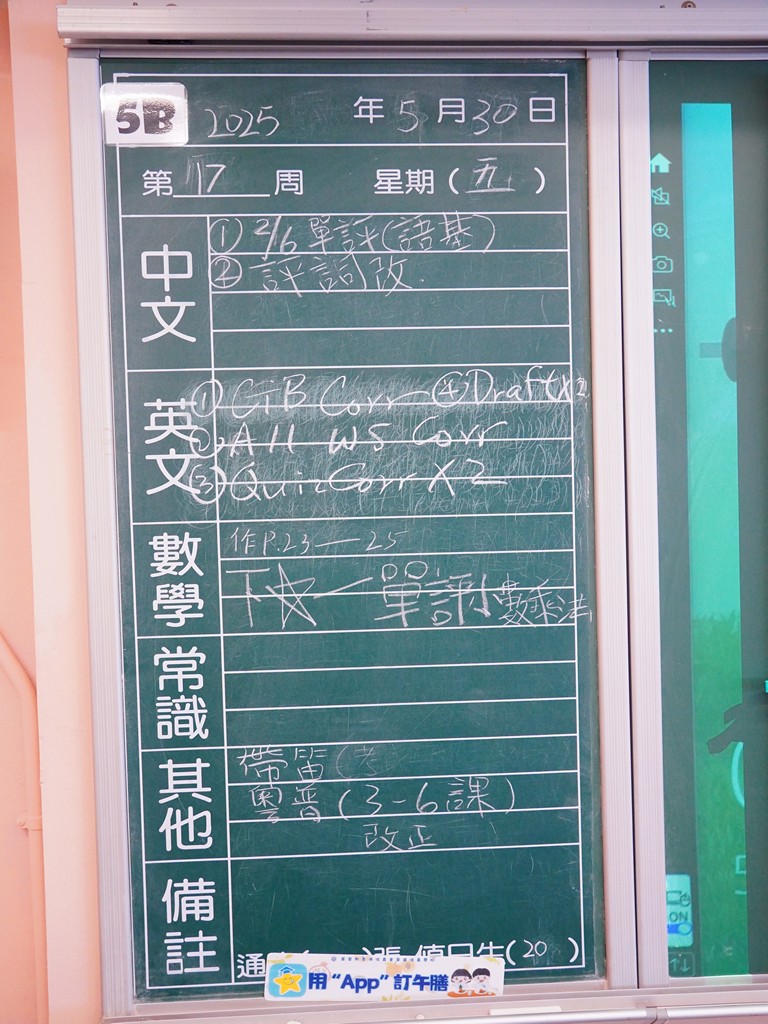 5B 2025 年 5 月 30 日
第 17 周 星期 ( 五 )
中文
① 2/6 單評(語基)
② 評詞改
英文
① GB Corr ④ Draft x2
② All WS Corr
③ Quiz Corr x2
數學
作P.23—25
下 — 單評小數乘法
常識
其他
帶笛(考
粵普(3-6課)
改正
備註
通 張 值日生(20 )
用“App”訂午膳
ON